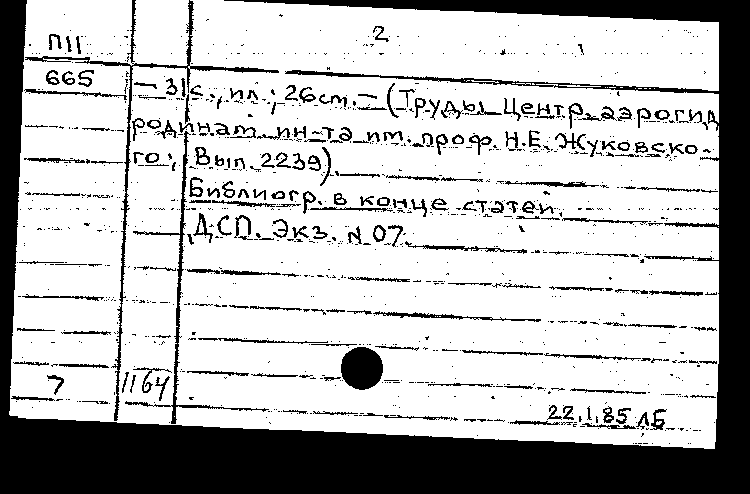 2
П11
665
— 31 с., ил.; 26 см. — (Труды Центр. аэрогид
родинам. ин-та им. проф. Н.Е. Жуковско-
го; Вып. 2239).
Библиогр. в конце статей.
ДСП. Экз. № 07.
7 1164
22.1.85 ЛБ